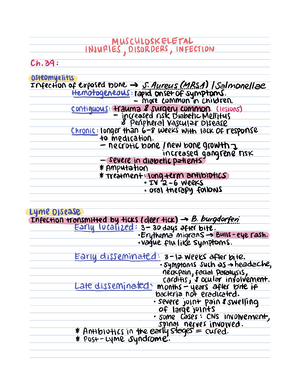 MUSCULOSKELETAL
INJURIES, DISORDERS, INFECTION
Ch.39:
Osteomyelitis
Infection of exposed bone → S. Aureus (MRSA) / Salmonellae
Hematogenous: rapid onset of symptoms.
- more common in children.
Contiguous: trauma & surgery common (lesions)
- increased risk Diabetic Mellitus
& Peripheral Vascular Disease
Chronic: longer than 6-8 weeks with lack of response
to medication.
- necrotic bone / new bone growth →
increased gangrene risk
- severe in diabetic patients
* Amputation
* Treatment: long term antibiotics
• IV 2-6 weeks
• oral therapy follows
Lyme Disease
Infection transmitted by ticks (deer tick) → B. burgdorferi
Early localized: 3-30 days after bite.
• Erythema migrans → Bulls-eye rash.
• vague flu like symptoms.
Early disseminated: 3-12 weeks after bite.
• symptoms such as → headache,
neck pain, facial paralysis,
carditis, & ocular involvement.
Late disseminated: months-years after bite if
bacteria not eradicated.
• severe joint pain & swelling
of large joints
• some cases: CNS involvement,
spinal nerves involved.
* Antibiotics in the early stages = cured.
* Post-Lyme syndrome.